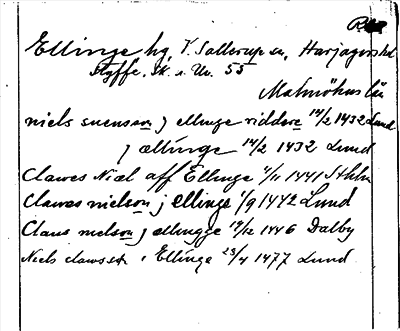 Ellinge hg, V. Sallerup sn, Harjagers hd
Styffe, Sk. o. Un. 55
Malmöhus län
niels suenson j ellinge riddere 14/2 1432 Lund
j ællinge 14/2 1432 Lund
Clawes Niel aff Ellinge 4/11 1441 Sthlm
Clawes nielson j ellinge 1/9 1442 Lund
Claus nielson j ellingge 14/12 1446 Dalby
Niels clawss. i Ellinge 23/4 1477 Lund